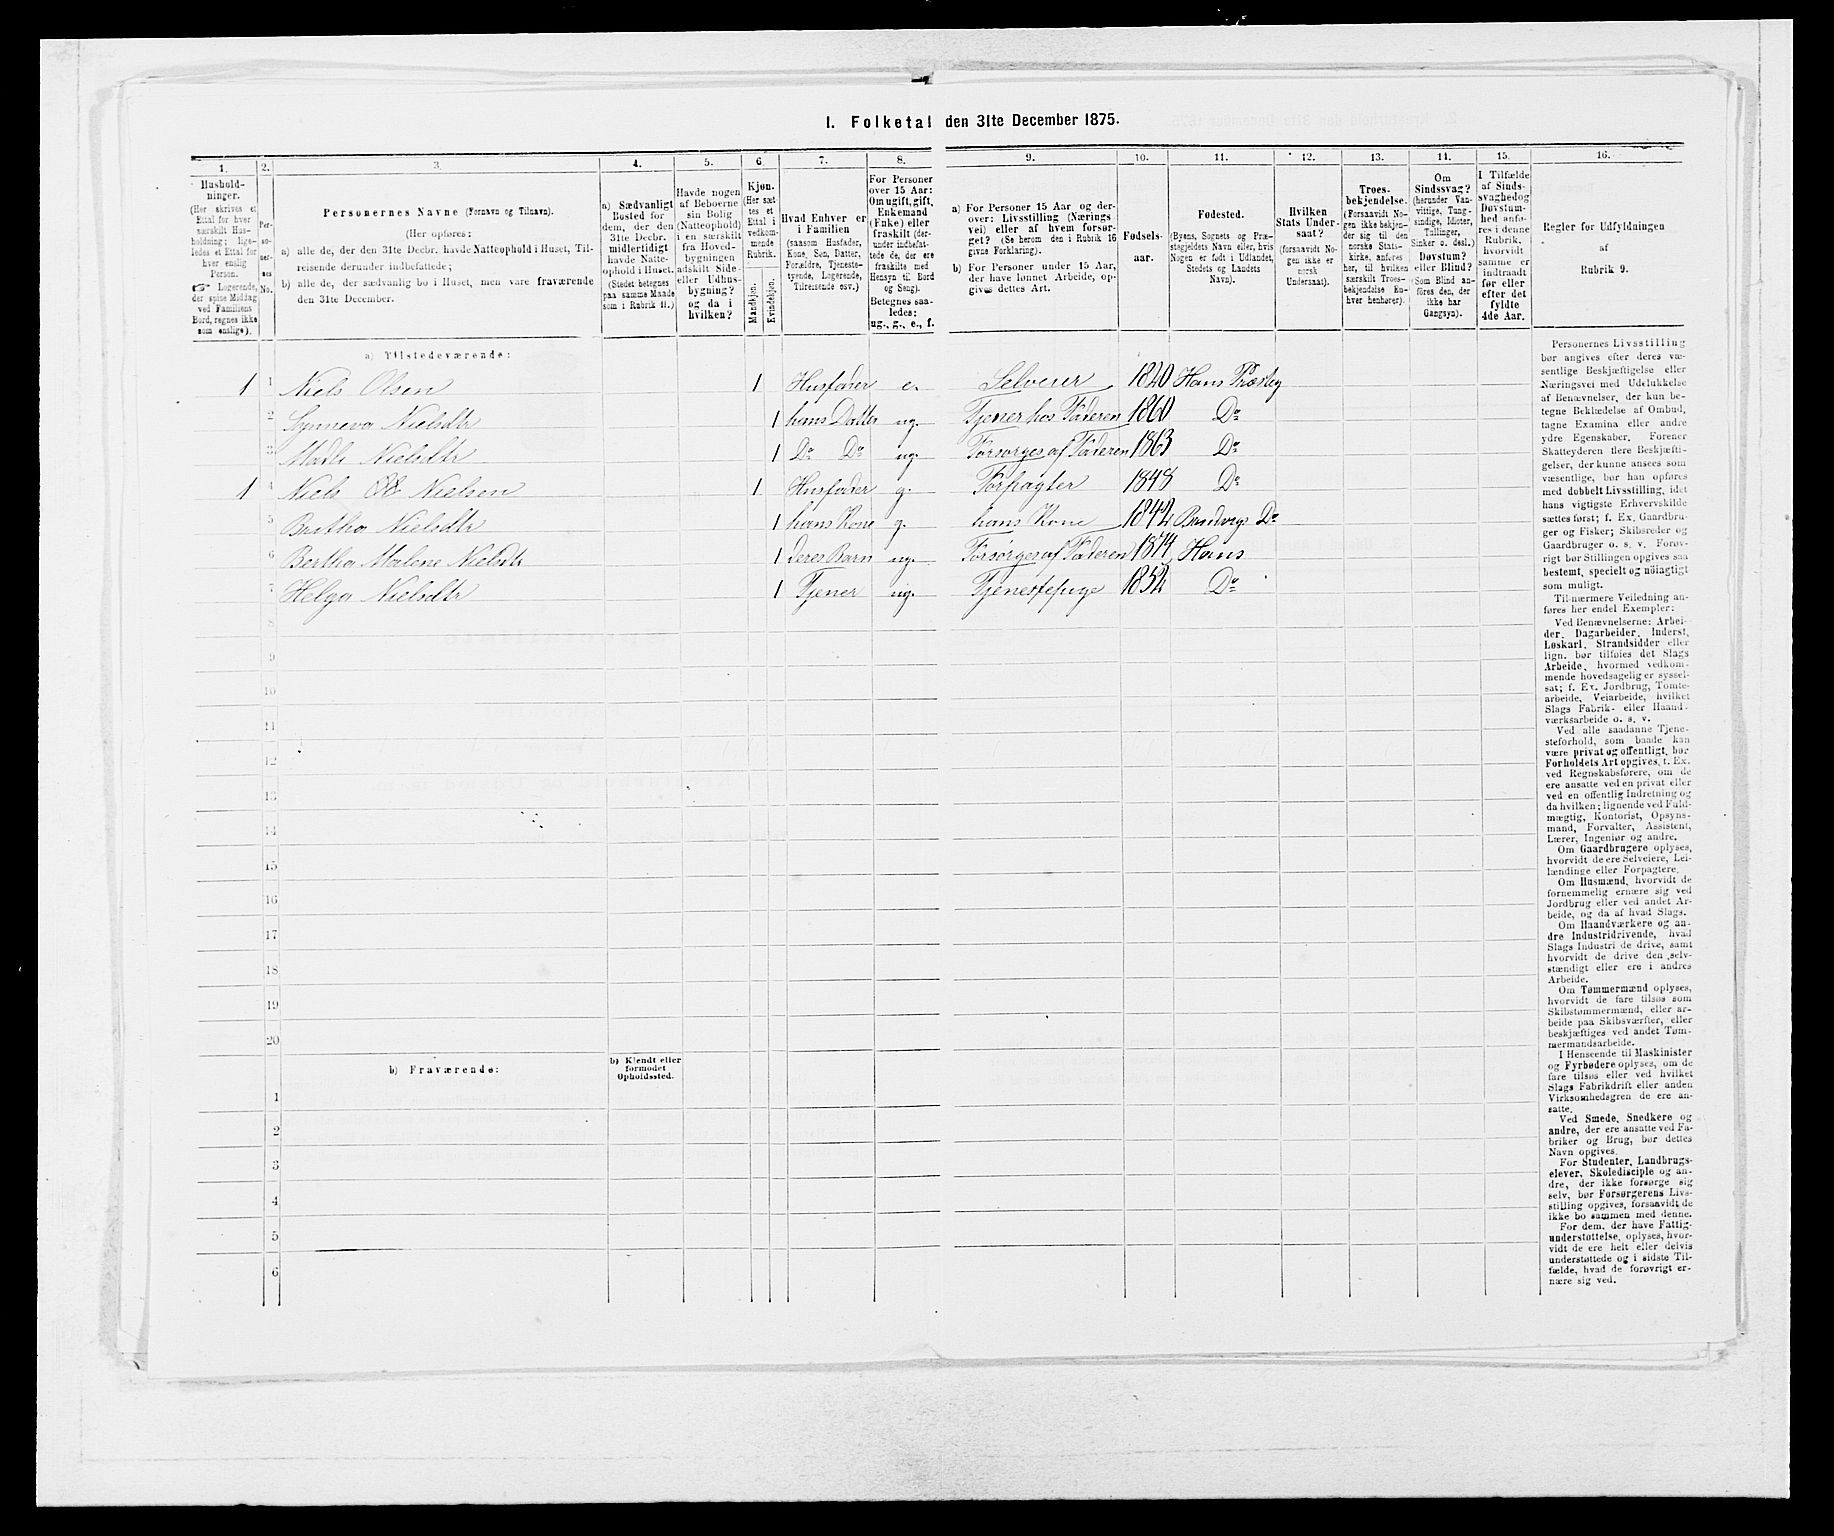 I. Folketal den 31te December 1875.
1. 2. 3. 4. 5. 6. 7. 8. 9. 10. 11. 12. 13. 14. 15. 16.
Hushold-
ninger.
(Her skrives et
Ettal for hver
særskilt Hus-
holdning; lige-
ledes et Ettal for
hver enslig
Person.
☞ Logerende,
der spise Middag
ved Familiens
Bord, regnes ikke
som enslige).
Per-
so-
ner-
nes
No.
Personernes Navne (Fornavn og Tilnavn).
(Her opføres:
a) alle de, der den 31te Decbr. havde Natteophold i Huset, Til-
reisende derunder indbefattede;
b) alle de, der sædvanlig bo i Huset, men vare fraværende
den 31te December.
a) Sædvanligt
Bosted for
dem, der den
31te Decbr.
midlertidigt
havde Natte-
ophold i Huset.
(Stedet betegnes
paa samme Maade
som i Rubrik 11.)
Havde nogen
af Beboerne
sin Bolig
(Natteophold)
i en særskilt
fra Hoved-
bygningen
adskilt Side-
eller Udhus-
bygning?
og da i
hvilken?
Kjøn.
(Her sæt
tes et
Ettal i
vedkom-
mende
Rubrik.
Mandkjøn.
Kvindekjøn.
Hvad Enhver er
i Familien
(saasom Husfader,
Kone, Søn, Datter,
Forældre, Tjeneste-
tyende, Logerende,
Tilreisende osv.)
For Personer
over 15 Aar:
Om ugift, gift,
Enkemand
(Enke) eller
fraskilt (der-
under indbefat-
tede de, der ere
fraskilte med
Hensyn til Bord
og Seng).
Betegnes saa-
ledes:
ug., g., e., f.
a) For Personer 15 Aar og der-
over: Livsstilling (Nærings
vei) eller af hvem forsør-
get? (Se herom den i Rubrik 16
givne Forklaring).
b) For Personer under 15 Aar,
der have lønnet Arbeide, op-
gives dettes Art.
Fødsels-
aar.
Fødested.
(Byens, Sognets og Præ-
stegjeldets Navn eller, hvis
Nogen er født i Udlandet,
Stedets og Landets
Navn).
Hvilken
Stats Under-
saat?
(forsaavidt No-
gen ikke er
norsk
Undersaat).
Troes-
bekjendelse.
(Forsaavidt No-
gen ikke bekjen-
der sig til den
norske Stats-
kirke, anføres
her, til hvilken
særskilt Troes-
bekjendelse En-
hver henhører).
Om
Sindssvag?
(herunder Van-
vittige, Tung-
sindige, Idioter,
Tullinger,
Sinker o. desl.)
Døvstum?
eller Blind?
(Som Blind an-
føres den, der
ikke har
Gangsyn).
I Tilfælde
af Sinds-
svaghedog
Døvstum-
hed anfø-
res i denne
Rubrik,
hvorvidt
samme er
indtraadt
før eller
efter det
fyldte
4de Aar.
Regler for Udfyldningen
af
Rubrik 9.
a) Tilstedeværende:
1 1 Niels Olsen 1 Husfader e. Selveier 1820 Hans Præsteg
2 Synneva Nielsdtr 1 hans Datter ug. Tjener hos Faderen 1860 Do
3 Madle Nielsdtr 1 Do Do ug. Forsørges af Faderen 1863 Do
1 4 Niels Nielsen 1 Husfader g. Forpagter 1848 Do
5 Britha Nielsdtr 1 hans Kone g. hans Kone 1842 Do
6 Bertha Malene Nielsdtr 1 deres Barn ug. Forsørges af Faderen 1874
7 Helga Nielsdtr 1 Tjener ug. Tjenestepige 1852 Do
8
9
10
11
12
13
14
15
16
17
18
19
20
b) Fraværende:
b) Kjendt eller
formodet
Opholdssted.
1
2
3
4
5
6
Personernes Livsstilling
bør angives efter deres væ-
sentlige Beskjæftigelse eller
Næringsvei med Udelukkelse
af Benævnelser, der kun be-
tegne Beklædelse af Ombud,
tagne Examina eller andre
ydre Egenskaber. Forener
Skatteyderen flere Beskjæfti-
gelser, der kunne ansees som
væsentlige, bør han opføres
med dobbelt Livsstilling, idet
hans vigtigste Erhvervskilde
sættes først; f. Ex. Gaardbru-
ger og Fisker; Skibsreder og
Gaardbruger o. s. v. Forøv-
rigt bør Stillingen opgives saa
bestemt, specielt og nøiagtigt
som muligt.
Til nærmere Veiledning an-
føres her endel Exempler:
Ved Benævnelserne: Arbei-
der, Dagarbeider, Inderst,
Løskarl, Strandsidder eller
lign. bør tilføies det Slags
Arbeide, hvormed vedkom-
mende hovedsagelig er syssel-
sat; f. Ex. Jordbrug, Tomte-
arbeide, Veiarbeide, hvilket
Slags Fabrik- eller Haand-
værksarbeide o. s. v.
Ved alle saadanne Tjene-
steforhold, som baade kan
være privat og offentligt, bør
Forholdets Art opgives, f. Ex.
ved Regnskabsførere, om de
ere ansatte ved en privat eller
ved en offentlig Indretning og
da hvilken; lignende ved Fuld-
mægtig, Kontorist, Opsyns-
mand, Forvalter, Assistent,
Lærer, Ingeniør og andre.
Om Gaardbrugere oplyses,
hvorvidt de ere Selveiere, Lei-
lændinge eller Forpagtere.
Om Husmænd, hvorvidt de
fornemmelig ernære sig ved
Jordbrug eller ved andet Ar-
beide, og da af hvad Slags.
Om Haandværkere og an-
dre Industridrivende, hvad
Slags Industri de drive, samt
hvorvidt de drive den selv-
stændigt eller ere i andres
Arbeide.
Om Tømmermænd oplyses,
hvorvidt de fare tilsøs som
Skibstømmermænd, eller ar-
beide paa Skibsværfter, eller
beskjæftiges ved andet Tøm-
mermandsarbeide.
I Henseende til Maskinister
og Fyrbødere oplyses, om de
fare tilsøs eller ved hvilket
Slags Fabrikdrift eller anden
Virksomhedsgren de ere an-
satte.
Ved Smede, Snedkere og
andre, der ere ansatte ved Fa-
briker og Brug, bør dettes
Navn opgives.
For Studenter, Landbrugs-
elever, Skoledisciple og an-
dre, der ikke forsørge sig
selv, bør Forsørgerens Livs-
stilling opgives, forsaavidt de
ikke bo sammen med denne.
For dem, der have Fattig-
understøttelse, oplyses, hvor-
vidt de ere helt eller delvis
understøttede og i sidste Til-
fælde, hvad de forøvrigt er-
nære sig ved.